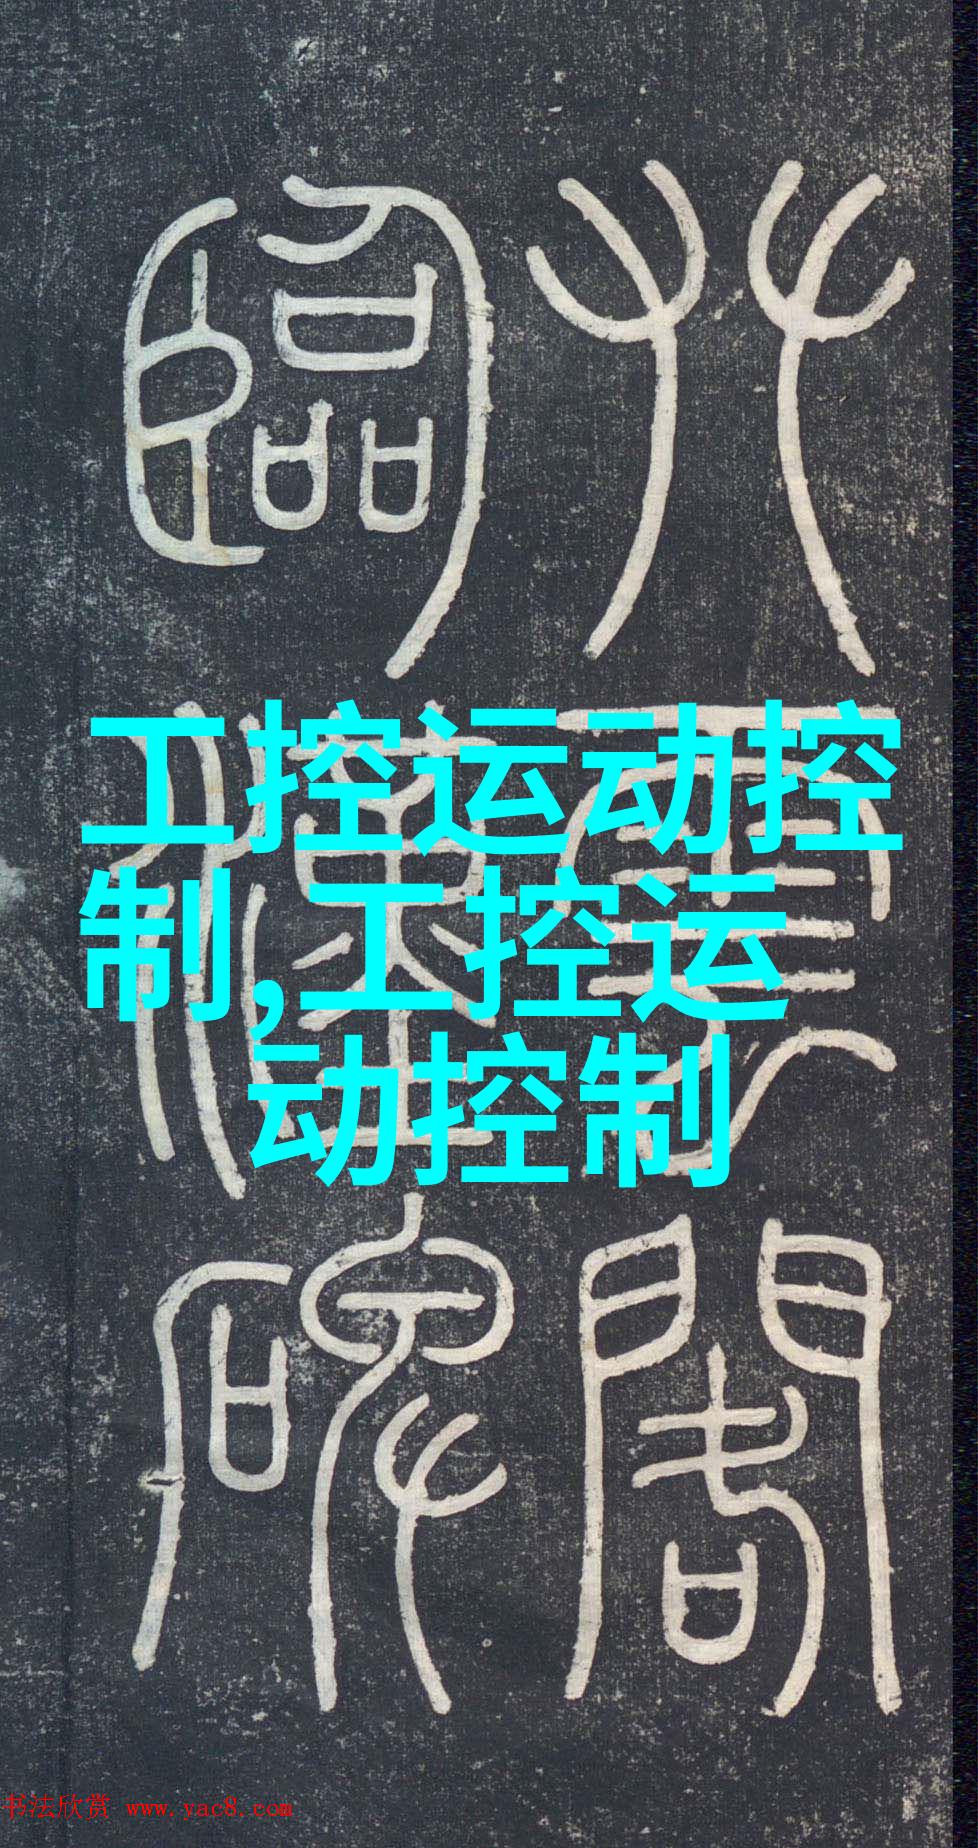 工控运动控
制,工控运
动控制
雲閣
臨漢碑
书法欣赏 www.yac8.com